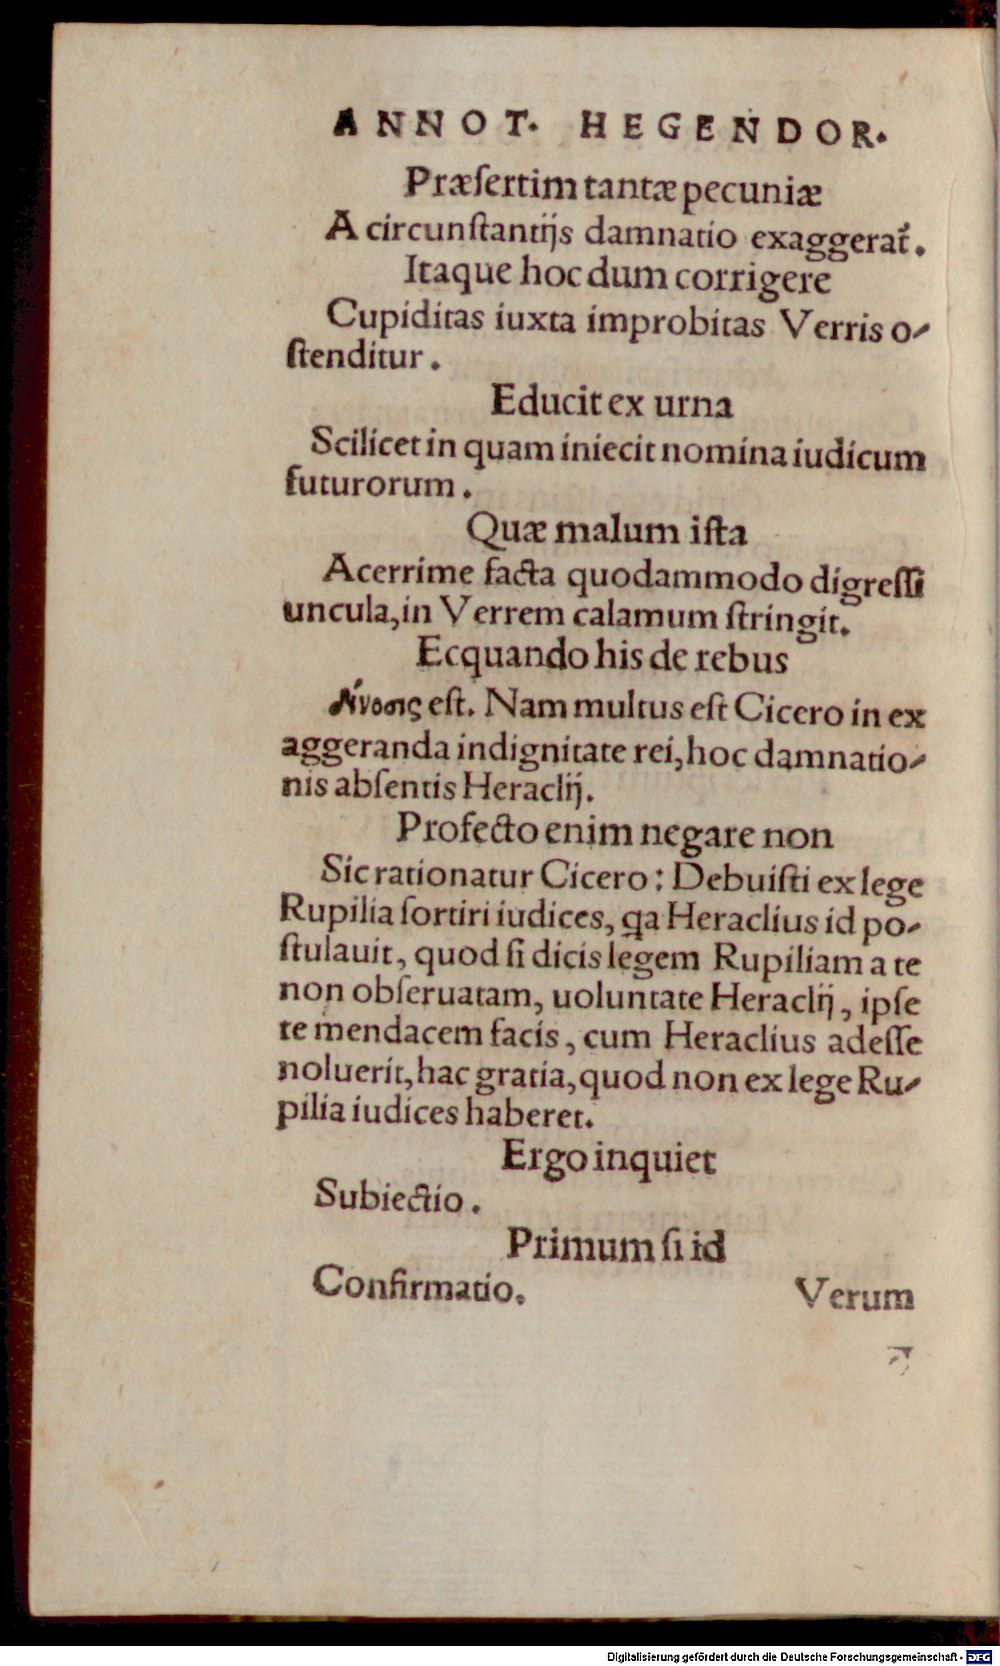 ANNOT. HEGENDOR.
Præſertim tantæ pecuniæ
A circunſtantijs damnatio exaggerat᷑.
Itaque hoc dum corrigere
Cupiditas iuxta improbitas Verris o-
ſtenditur.
Educit ex urna
Scilicet in quam iniecit nomina iudicum
futurorum.
Quæ malum iſta
Acerrime facta quodammodo digreſſi
uncula, in Verrem calamum ſtringit.
Ecquando his de rebus
eſt. Nam multus eſt Cicero in ex
aggeranda indignitate rei, hoc damnatio-
nis abſentis Heraclij.
Profecto enim negare non
Sic rationatur Cicero: Debuiſti ex lege
Rupilia ſortiri iudices, qa Heraclius id po-
ſtulauit, quod ſi dicis legem Rupiliam a te
non obſeruatam, uoluntate Heraclij, ipſe
te mendacem facis, cum Heraclius adeſſe
noluerit, hac gratia, quod non ex lege Ru-
pilia iudices haberet.
Ergo inquiet
Subiectio.
Primum ſi id
Confirmatio. Verum
Digitalisierung gefördert durch die Deutsche Forschungsgemeinschaft - DFG